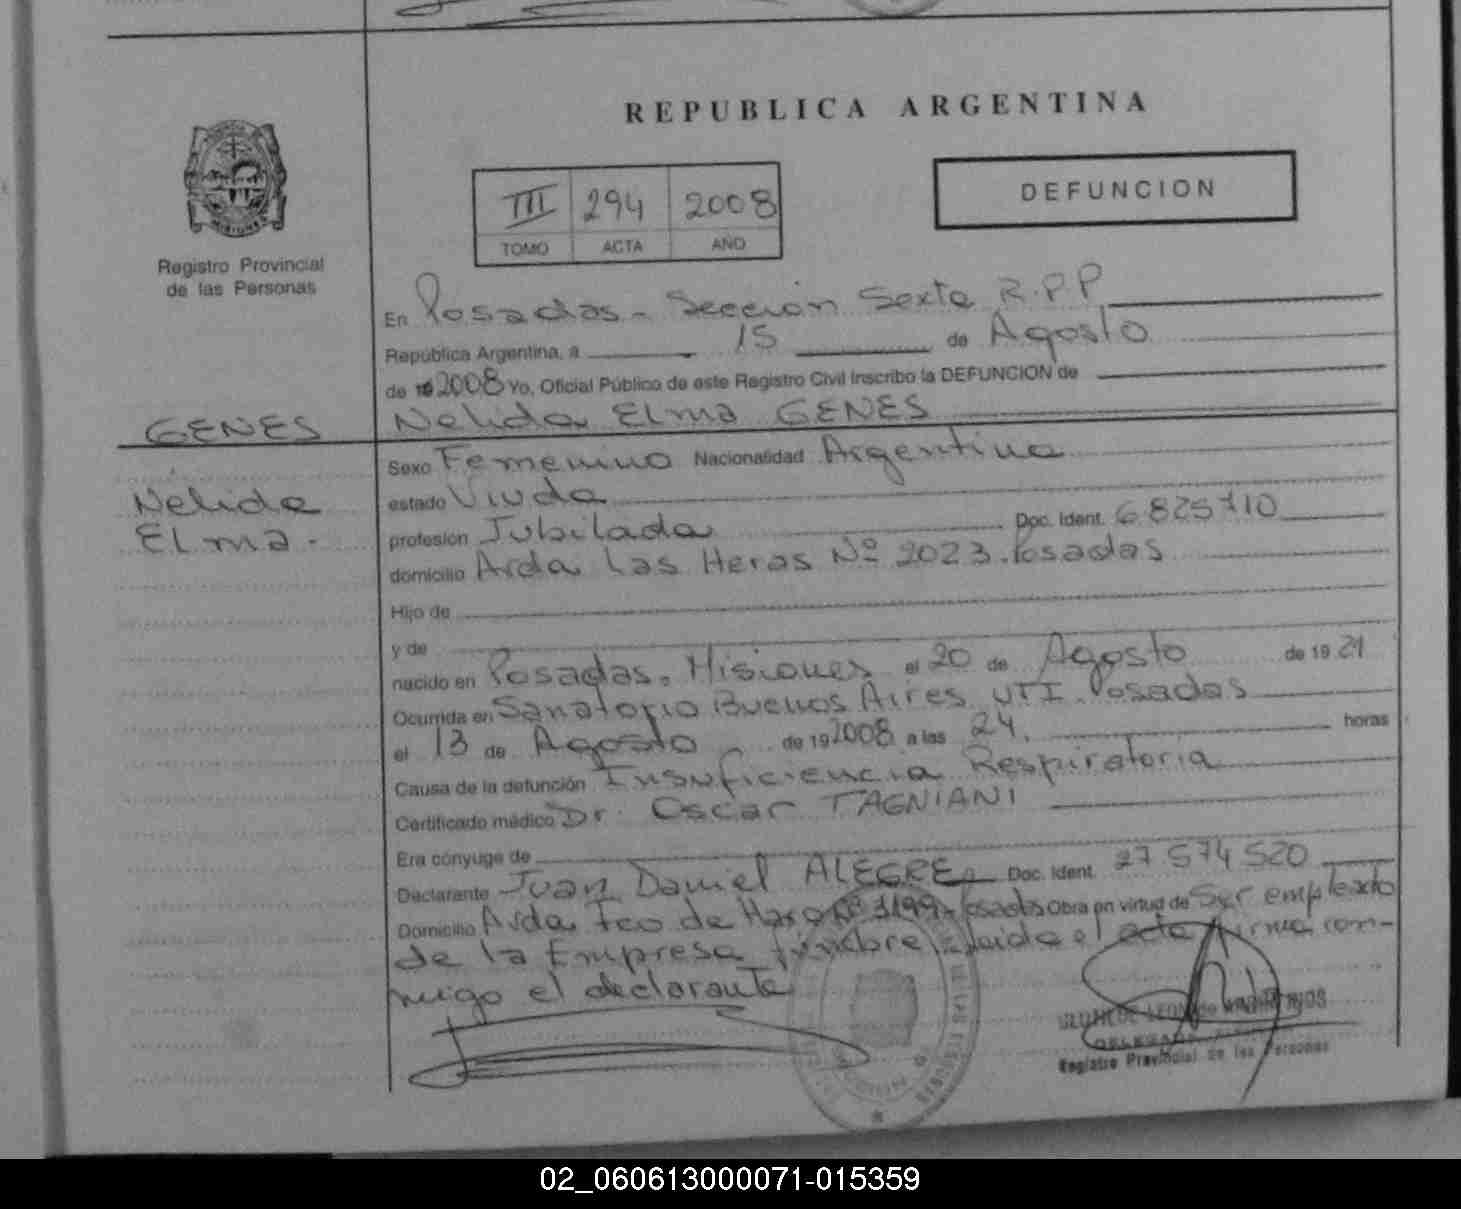 REPUBLICA ARGENTINA
III 294 2008
TOMO ACTA AÑO
DEFUNCION
Registro Provincial
de las Personas
En Posadas - Sección Sexta R.P.P
República Argentina, a 15 de Agosto
de 19 2008 Yo, Oficial Público de este Registro Civil Inscribo la DEFUNCION de
Nelida Elma GENES
GENES
Nelida
Elma.-
Sexo Femenino Nacionalidad Argentina
estado Viuda
profesión Jubilada Doc. Ident. 6825710
domicilio Avda Las Heras Nº 2023. Posadas
Hijo de
y de
nacido en Posadas. Misiones el 20 de Agosto de 19 21
Ocurrida en Sanatorio Buenos Aires UTI. Posadas
el 13 de Agosto de 19 2008 a las 24. horas
Causa de la defunción Insuficiencia Respiratoria
Certificado médico Dr. Oscar TAGNIANI
Era cónyuge de
Declarante Juan Daniel ALEGRE Doc. Ident. 27.574.520
Domicilio Avda Fco de Haro Nº 3199- Posadas Obra en virtud de Ser empleado
de la Empresa fúnebre leida el acta firma con-
migo el declarante
Registro Provincial de las Personas
02_060613000071-015359